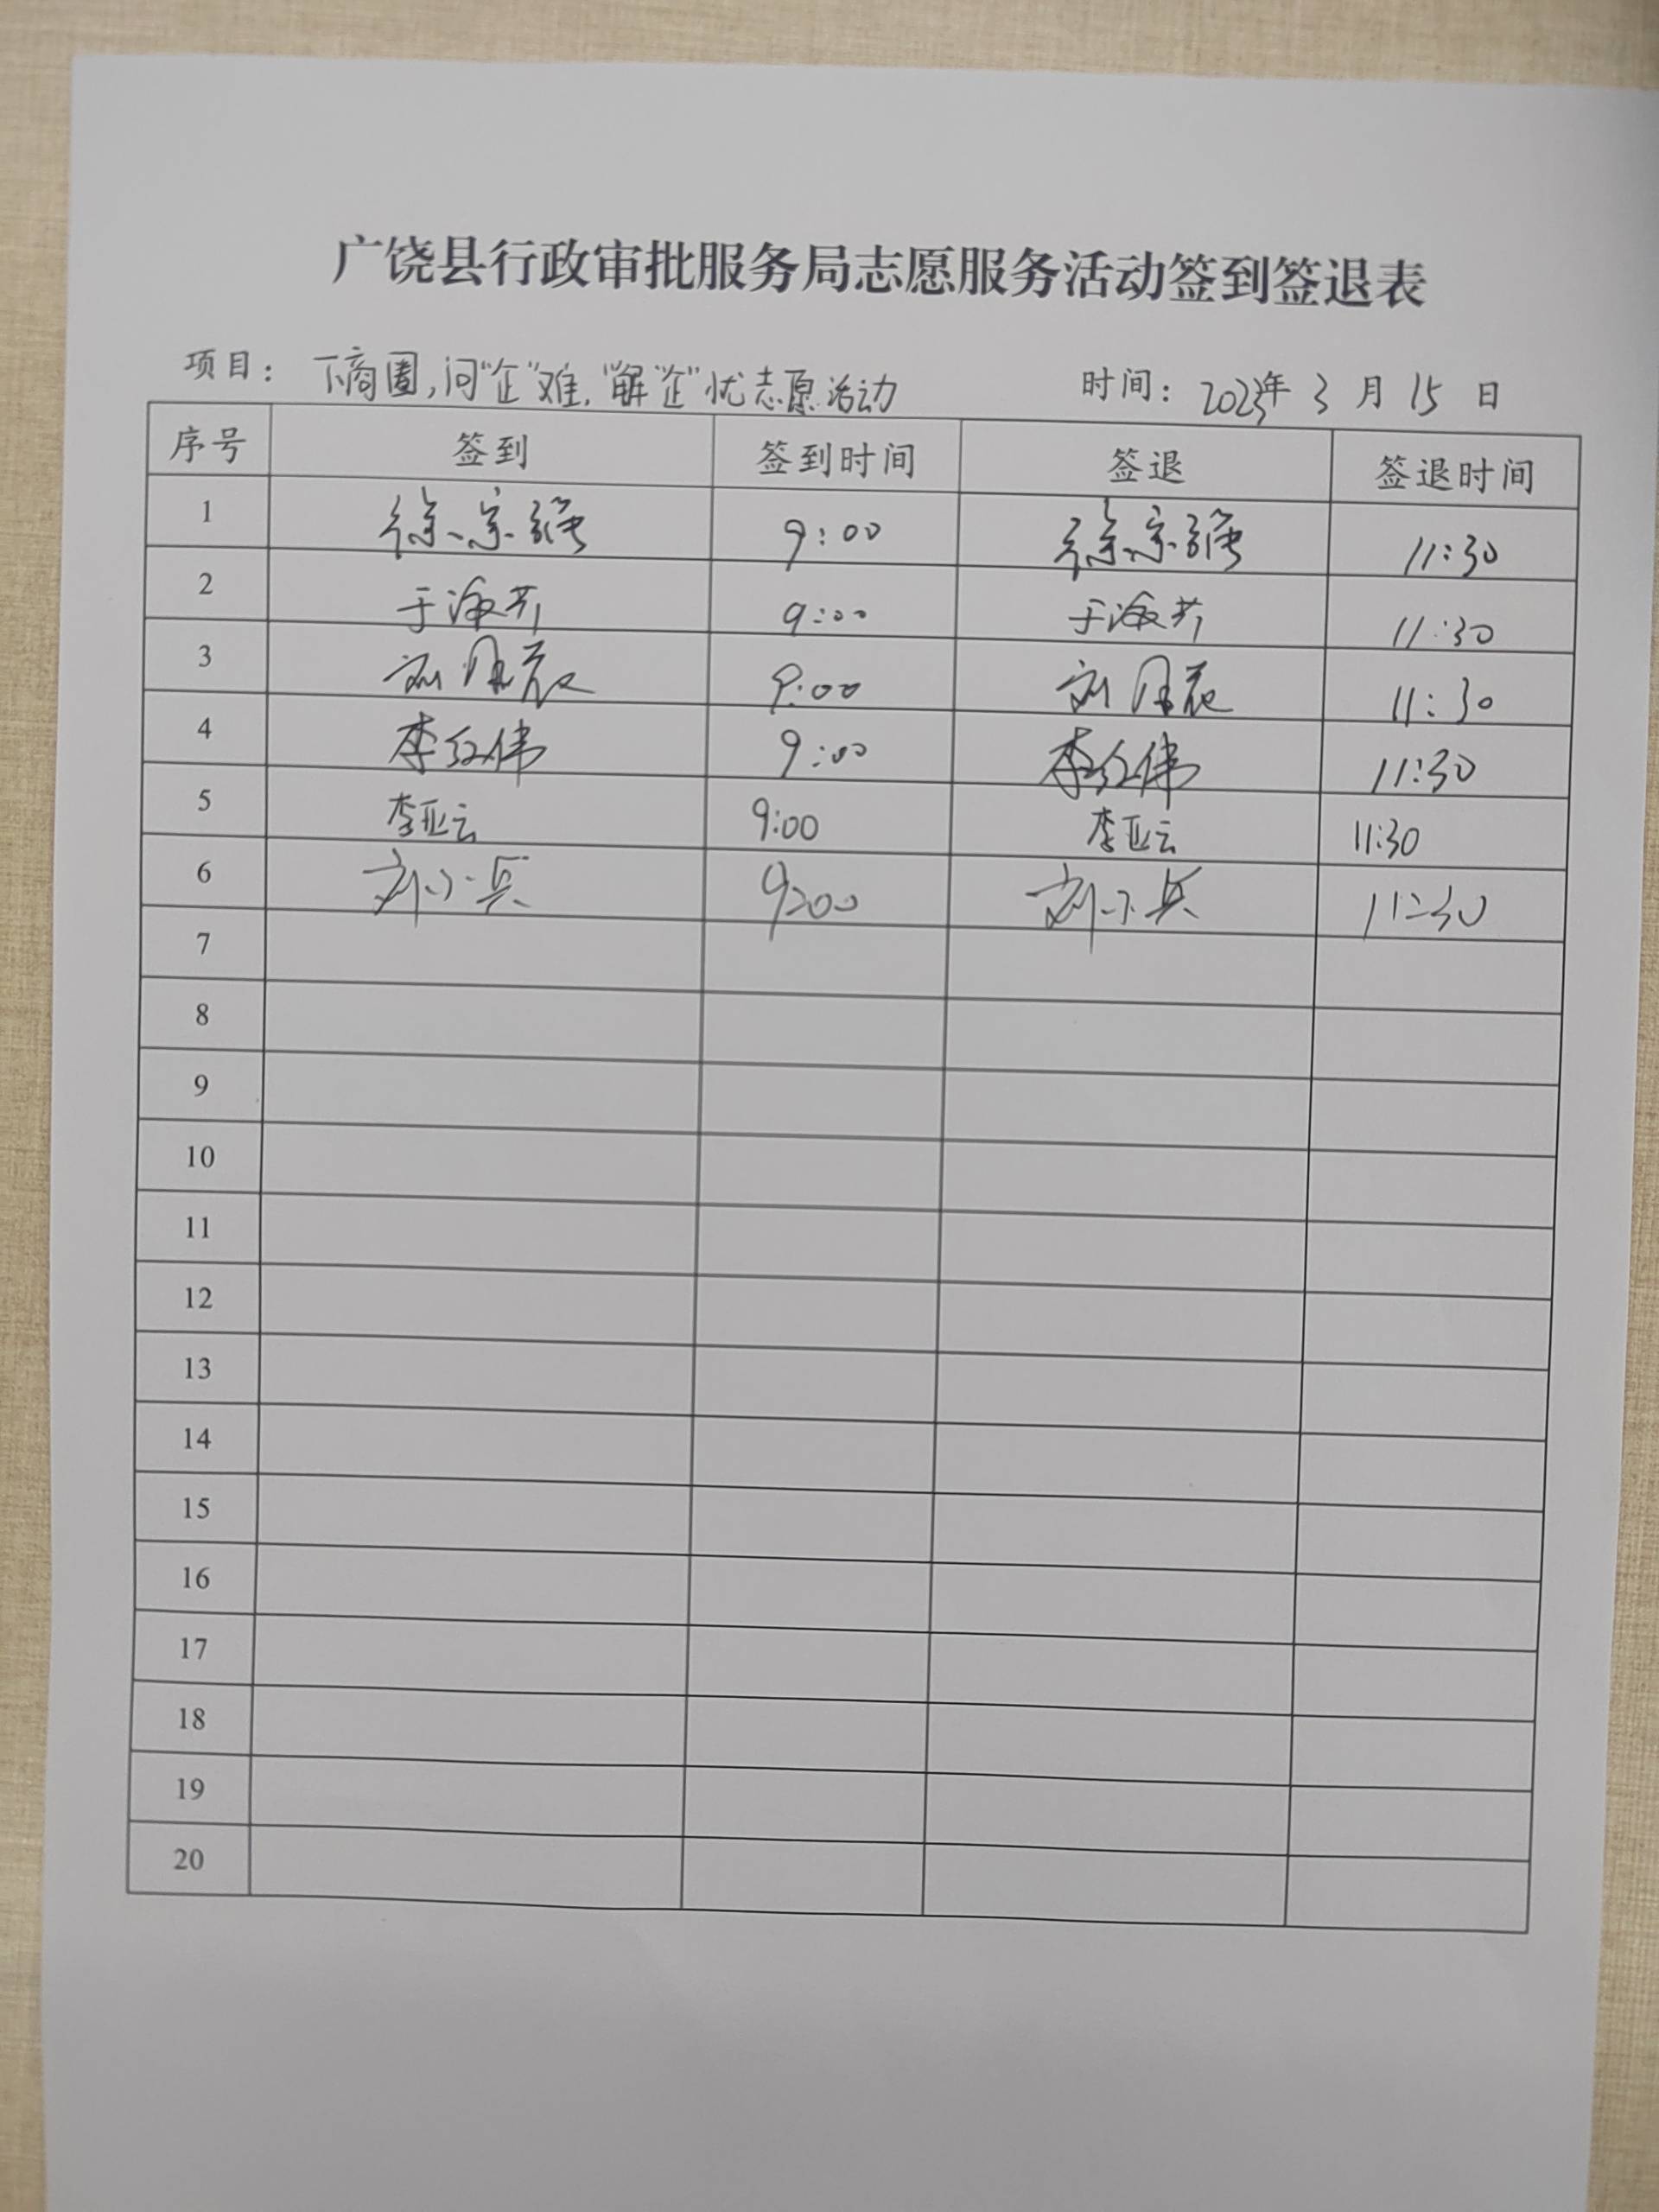 广饶县行政审批服务局志愿服务活动签到签退表
项目： 下商圈,问"企"难,"解"企"忧志愿活动 时间：2023年 3 月 15 日
序号 签到 签到时间 签退 签退时间
1 徐宗强 9:00 徐宗强 11:30
2 于海芹 9:00 于海芹 11:30
3 刘 9:00 刘 11:30
4 李红伟 9:00 李红伟 11:30
5 李亚云 9:00 李亚云 11:30
6 刘小兵 9:00 刘小兵 11:30
7
8
9
10
11
12
13
14
15
16
17
18
19
20